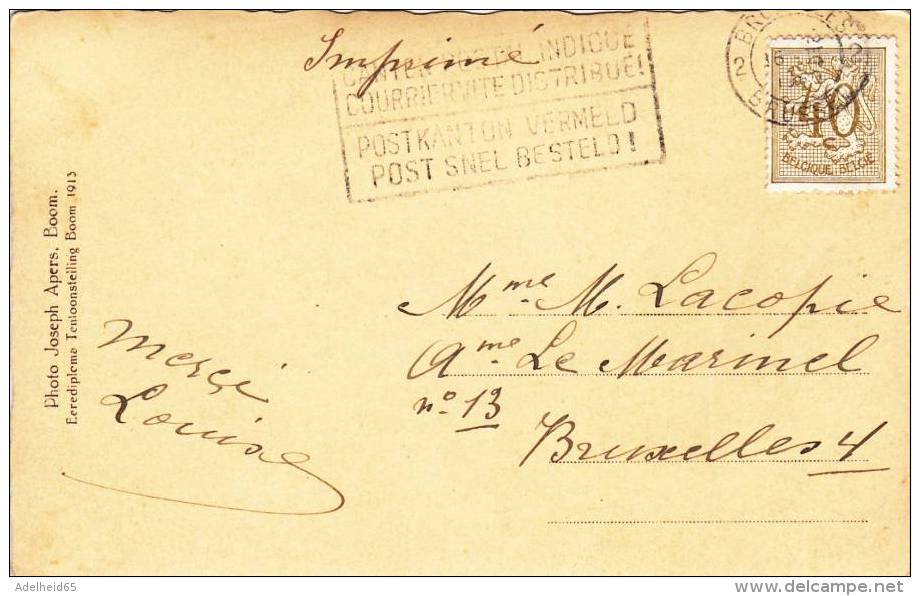 Imprimé
CANTON POSTAL INDIQUÉ
COURRIER VITE DISTRIBUÉ!
POSTKANTON VERMELD
POST SNEL BESTELD!
2
16
40
BELGIQUE-BELGIE
Photo Joseph Apers, Boom.
Eerediploma Tentoonstelling Boom 1913
Merci
Louise
Mme M. Lacopie
Ame Le Marinel
no. 13
Bruxelles 4
Adelheid65
www.delcampe.net